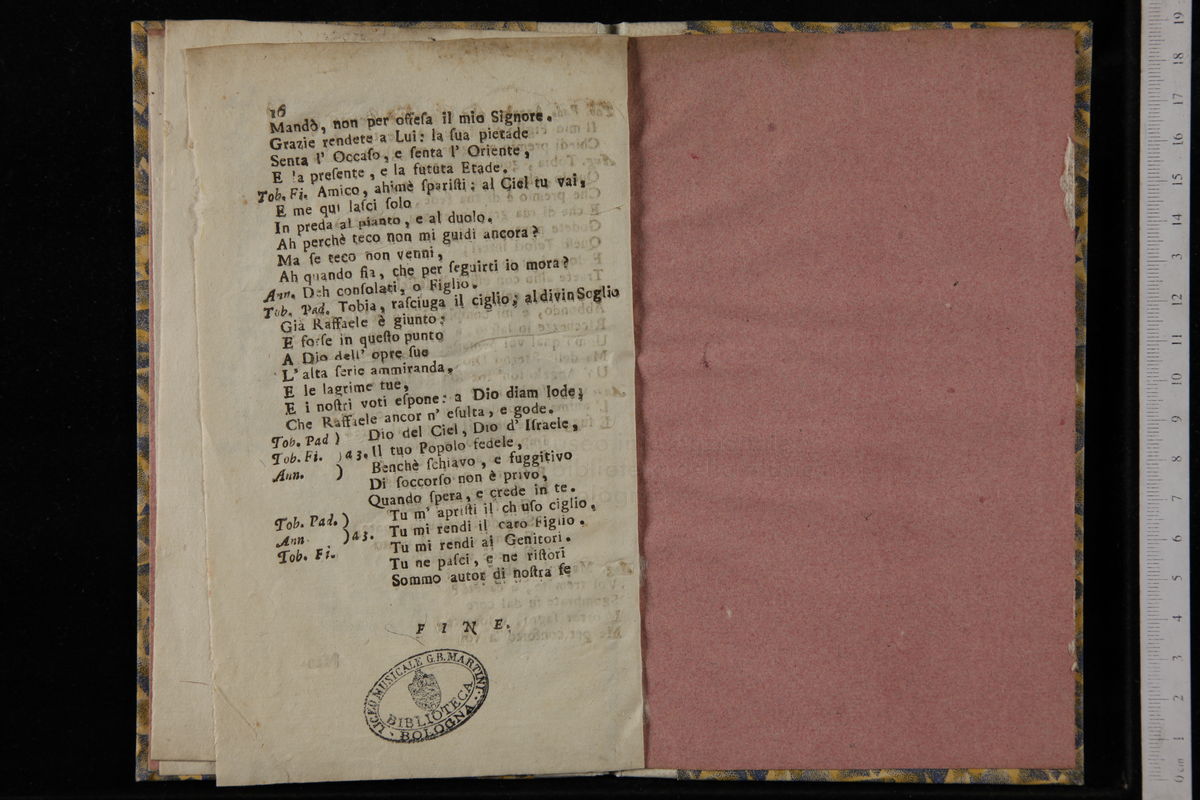 16
Mandò, non per offeſa il mio Signore.
Grazie rendete a Lui: la ſua pietade
Senta l' Occaſo, e ſenta l' Oriente,
E la preſente, e la fututa Etade.
Tob. Fi. Amico, ahimè ſpariſti; al Ciel tu vai,
E me qui laſci ſolo
In preda al pianto, e al duolo.
Ah perchè teco non mi guidi ancora?
Ma ſe teco non venni,
Ah quando fia, che per ſeguirti io mora?
Ann. Deh conſolati, o Figlio.
Tob. Pad. Tobia, raſciuga il ciglio; al divin Soglio
Già Raffaele è giunto;
E forſe in queſto punto
A Dio dell' opre ſue
L' alta ſerie ammiranda,
E le lagrime tue,
E i noſtri voti eſpone: a Dio diam lode;
Che Raffaele ancor n' eſulta, e gode.
Tob. Pad ) Dio del Ciel, Dio d' Iſraele,
Tob. Fi. ) a 3. Il tuo Popolo fedele,
Ann. ) Benchè ſchiavo, e fuggitivo
Di ſoccorſo non è privo,
Quando ſpera, e crede in te.
Tob. Pad. ) Tu m' apriſti il ch uſo ciglio,
Ann ) a 3. Tu mi rendi il caro Figlio.
Tob. Fi. Tu mi rendi ai Genitori.
Tu ne paſci, e ne riſtori
Sommo autor di noſtra fe
FINE.
LICEO MUSICALE G.B. MARTINI
BIBLIOTECA
BOLOGNA
0 cm 1 2 3 4 5 6 7 8 9 10 11 12 13 14 15 16 17 18 19